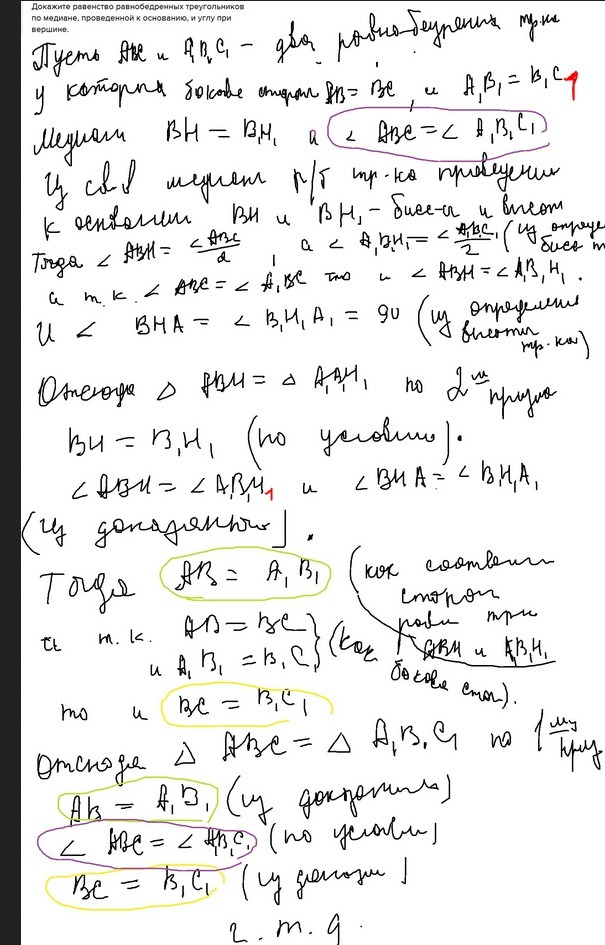 Докажите равенство равнобедренных треугольников
по медиане, проведенной к основанию, и углу при
вершине.
Пусть ABC и A₁B₁C₁ - два равнобедрених тр-ка
у которых бокове сторон AB = BC, и A₁B₁ = B₁C₁
Медиани BH = B₁H₁ и ∠ ABC = ∠ A₁B₁C₁
Из св-в медиан р/б тр-ка проведении
к основании BH и BH₁ - бисс-а и высот
Тогда ∠ ABH = ∠ABC/2, а ∠ A₁B₁H₁ = ∠A₁B₁C₁/2 (из опреде
бисс
а т.к. ∠ ABC = ∠ A₁BC то и ∠ ABH = ∠A₁B₁H₁.
И ∠ BHA = ∠ B₁H₁A₁ = 90 (из определения
высоты
тр-ка)
Отсюда △ ABH = △ A₁BH₁ по 2
BH = B₁H₁ (по условию).
∠ ABH = ∠A₁B₁H₁ и ∠BHA = ∠ BH₁A₁
(из доказанного).
Тогда AB = A₁B₁ (как соответ
сторон
равн тр
ABH и A₁B₁H₁
а т.к. AB = BC
и A₁B₁ = B₁C₁ } (как
бокове стор).
то и BC = B₁C₁
Отсюда △ ABC = △ A₁B₁C₁ по 1 му
приз
AB = A₁B₁ (из доказ)
∠ ABC = ∠ A₁B₁C₁ (по услови)
BC = B₁C₁ (из доказ)
ч.т.д.